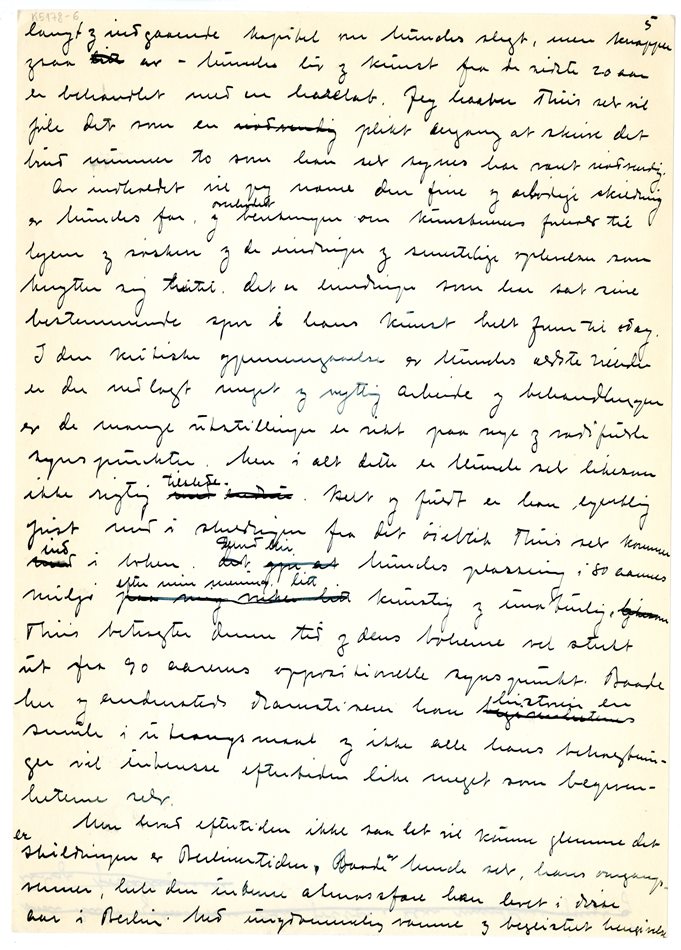 K5178-6
5
langt z indgaaende kapitel om Munchs slegt, men knappe
zsaa ar - Munchs liv z kunst fra de sidste 20 aar
er behandlet med en harelab. Jeg haaber Thiis selv vil
føle det som en nødvendig plikt engang at skrive det
bind nummer to som han selv synes har vært nødvendig.
Av indholdet vil jeg nævne den fine z skildring
er Munchs far, z ombendet om kunstnerens forhold til
byen z søsken z de erindringer z smertelige oplevelser som
knytter sig hertil. Det er erindringer som har sat sine
bestemmende spor i hans kunst helt frem til idag.
I den kritiske gjennemgaaelse er Munchs ældste billeder
er der nedlagt meget z nyttig arbeide z behandlingen
er de mange utstillinger er rikt paa nye z
synspunkter. Men i alt dette er Munch selv likesom
ikke rigtig tilstede. Helt z fuldt er han egentlig
først med i skildringen fra det øieblik Thiis selv kommer
ind i boken. Munchs plassering i 80 aarenes
miljø efter min mening litt kunstig z unaturlig,
Thiis betragter denne tid z dens boheme vel sterkt
ut fra 90 aarenes oppositionelle synspunkt. Baade
her z andensteds dramatiserer han historien en
smule i utrængsmaal z ikke alle hans
ger vil interesse eftertiden like meget som begiven-
heterne selv.
Men hvad eftertiden ikke saa let vil kunne glemme det
er skildringen er Berlinertiden, Baade Munch selv, hans omgangs-
venner, hele den intense atmosfære han levet i disse
aar i Berlin. Med ungdommelig varme z begeistret